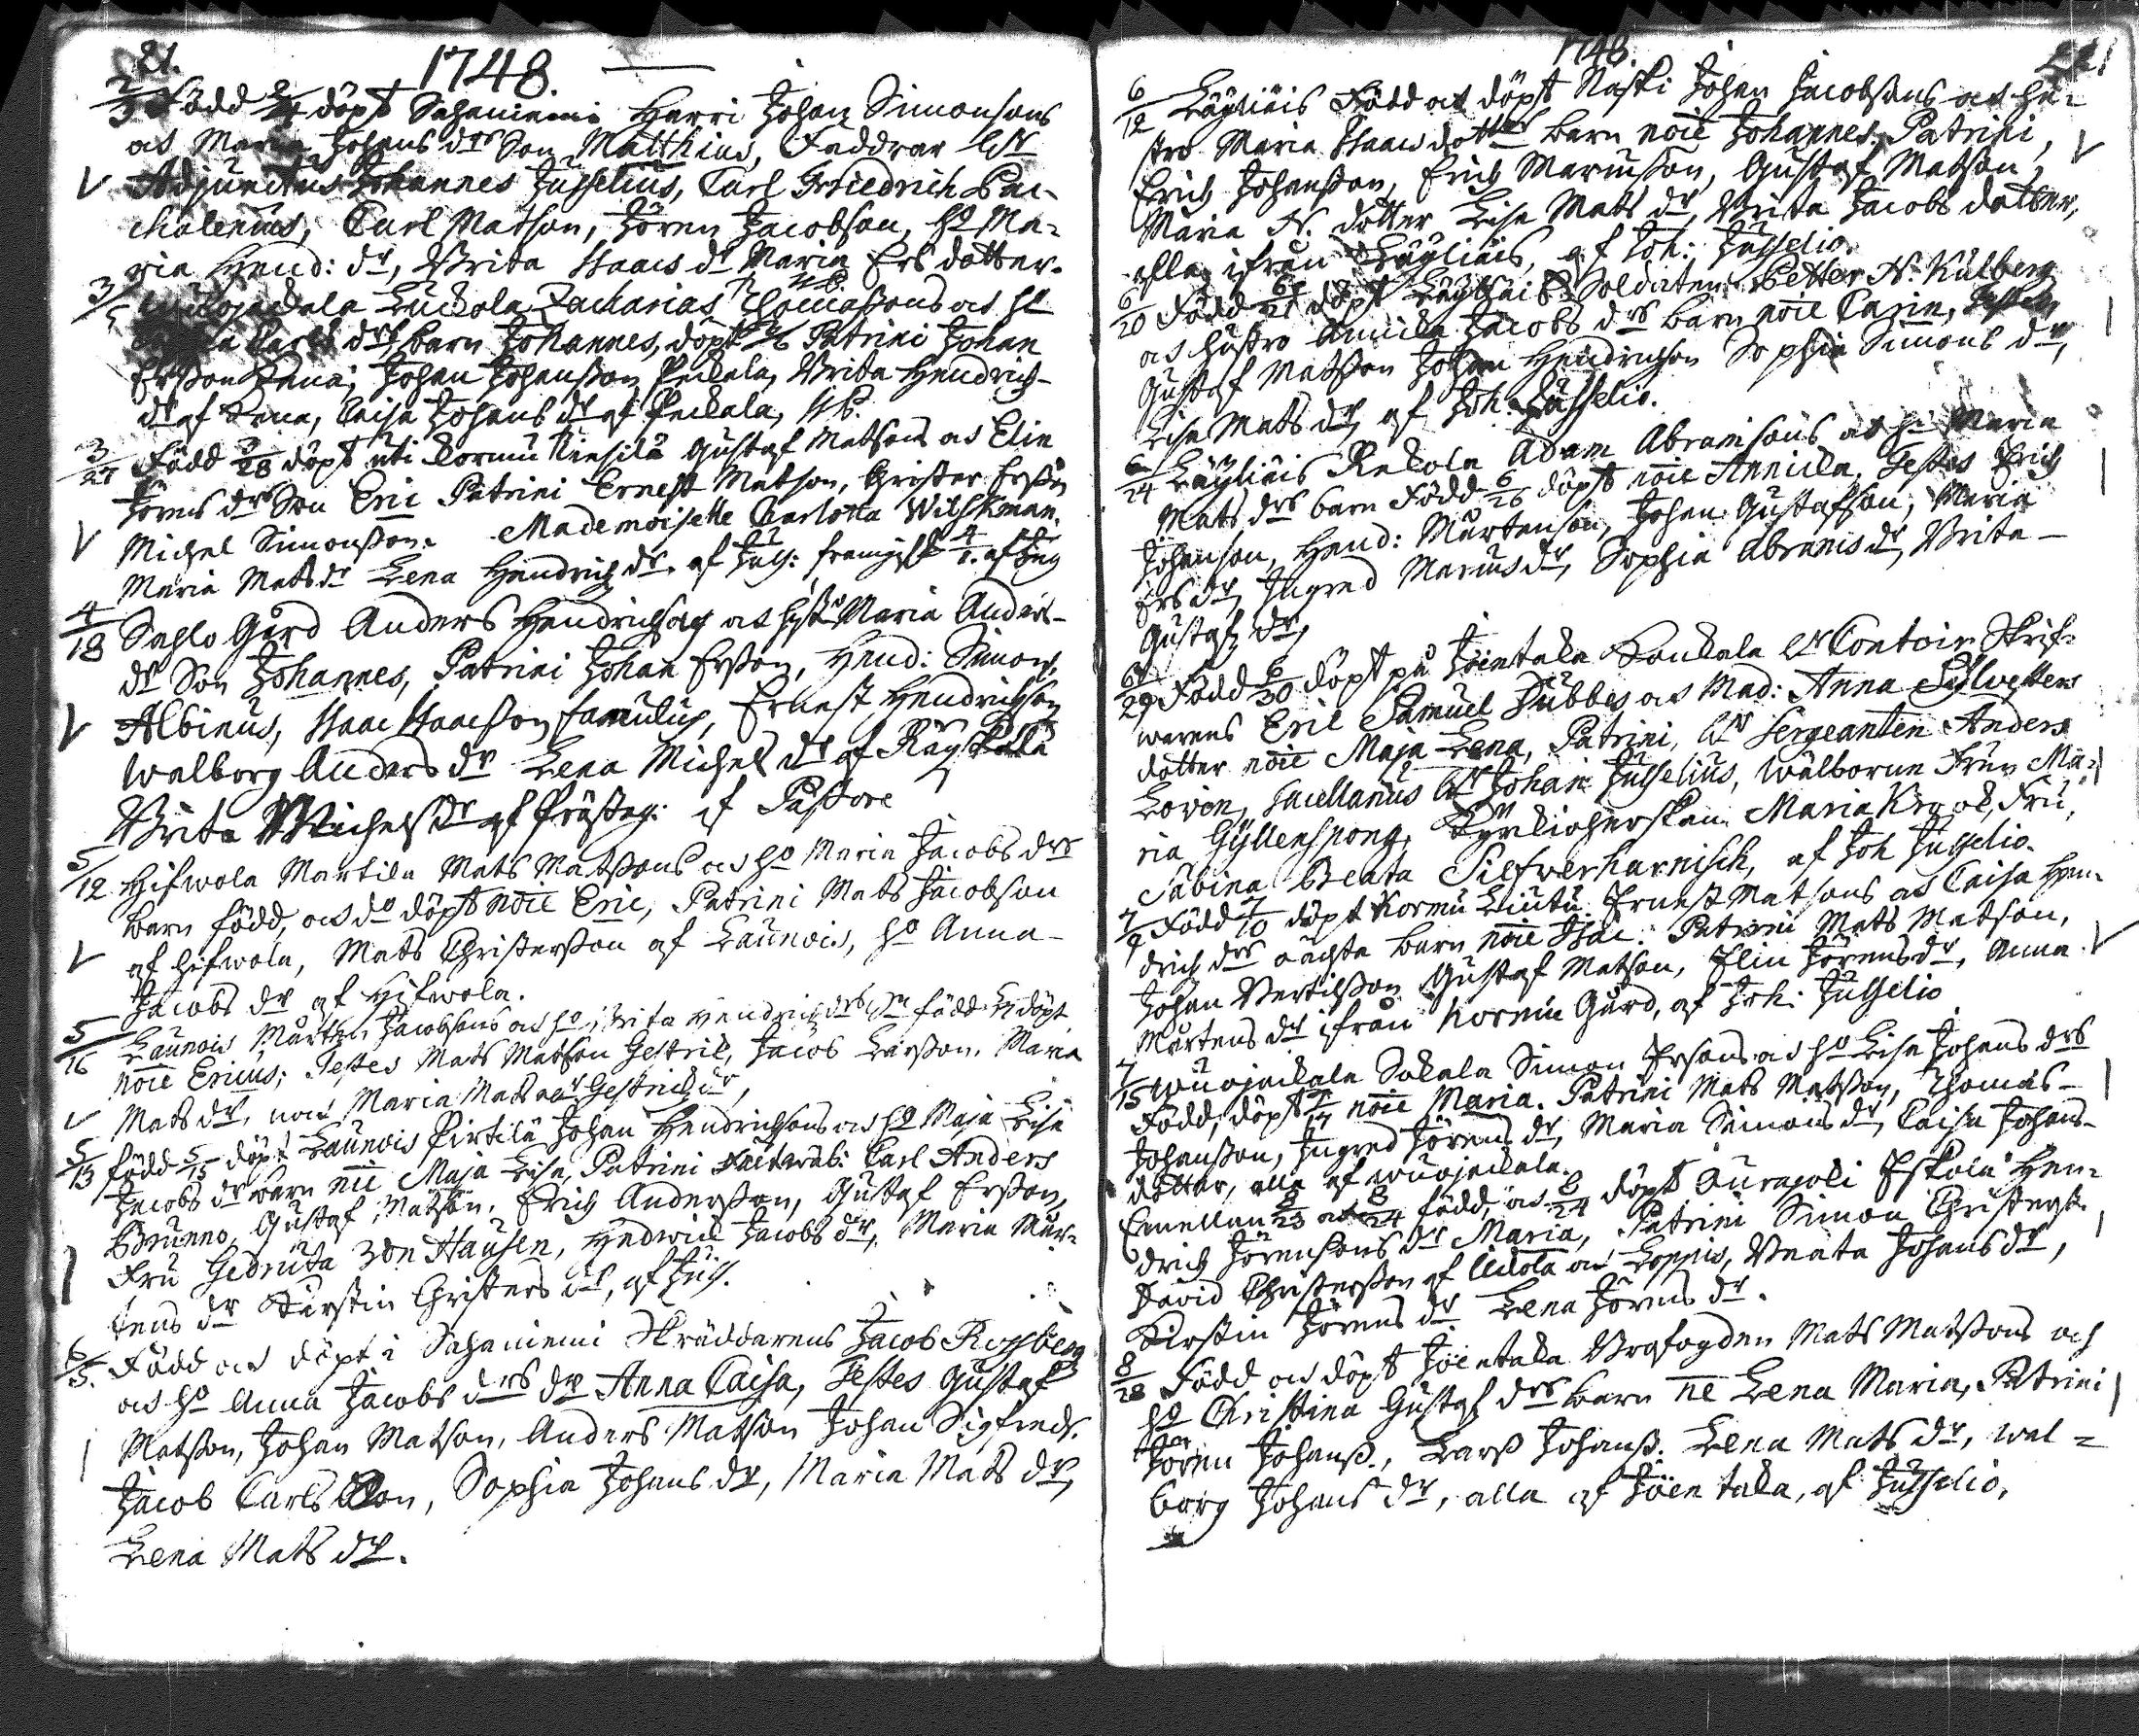 21.
1748.
2/3 Född 2/4 döpt Sahaniemi Harri Johan Simonsons
och Maria Johans drs Son Matthias, Faddrar Hr
Adjunctus Johannes Jusselius, Carl Friedrich Pac-
chalenius, Carl Matson, Jören Jacobson, ho Ma-
ria Hend: dr, Brita Isaacs dr Maria Ers dotter.
3/5 Wuojackala Luckola Zacharias Thomassons och ho
Carls drs barn Johannes, döpt Patrini Johan
Ersson Kena, Johan Johansson Peckala, Brita Hendrich-
dr af Kena, Caisa Johans dr af Peckala, NB.
3/27 Född 3/28 döpt uti Kormu Kinsilä Gustaf Matsons och Elin
Jörens drs Son Eric Patrini Ernest Matson, Christer Ersson
Michel Simonsson. Mademoiselle Carlotta Wilskman.
Maria Mats dr Lena Hendrich dr. af Juss:
4/18 Sahlo Gård Anders Hendrichsons och hust: Maria Anders-
dr Son Johannes, Patrini Johan Ersson, Hend: Simons.
Albinus, Isaac Isaacsson famulus, Ernest Hendrichson
Walborg Anders dr Lena Michels dr af Räyskälä
Brita Michels dr af Prästeg: af Pastore
5/12 Hifwola Martila Mats Matssons och ho Maria Jacobs drs
barn född, och do döpt noie Eric, Patrini Mats Jacobson
af Hifwola, Mats Christersson af Launois, ho Anna
Jacobs dr af Hifwola.
5/16 Launois Mårten Jacobsons och ho, Brita Hendrich drs Son född döpt
noie Ericus; Testes Mats Matson Gestrik, Jacob Larsson. Maria
Mats dr, Maria Mats Gestrick
5/13 född 5/15 döpt Launois Pirtilä Johan Hendrichsons och ho Maja Lisa
Jacobs dr barn nie Maja Lisa, Patrini Carl Anders
Brunno, Gustaf Matson, Erich Andersson, Gustaf Ersson,
Fru Gedruta von Hausen, Hedwick Jacobs dr, Maria Mår-
tens dr Kirstin Christers dr, af Juss.
6/5. Född och döpt i Sahaniemi Skräddarens Jacob Rossberg
och ho Anna Jacobs drs dr Anna Caisa, Testes Gustaf
Matsson, Johan Matson, Anders Matson Johan Sigfreds.
Jacob Carlsson, Sophia Johans dr, Maria Mats dr,
Lena Mats dr.
1748.
22
6/12 Läyliäis Född och döpt Raski Johan Jacobsons och hu-
stro Maria Isaacs dotters barn noie Johannes. Patrini,
Erich Johansson, Erich Mariusson, Gustaf Matson,
Maria N. dotter Lisa Mats dr, Brita Jacobs dotter,
alla ifrån Läyliäis, af Joh: Jusselio.
6/20 Född 6/21 döpt Läyliäis Soldaten Petter N. Kulberg
och hustro Annika Jacobs drs barn noie Carin, Testes
Gustaf Matsson Johan Hendrichson Sophia Simons dr,
Lisa Mats dr, af Joh: Jusselio.
6/24 Läyliäis Rekola Adam Abramsons och ho Maria
Mats drs barn Född 6/26 döpt noie Annicka, Testes Erich
Johanson, Hend: Mårtenson, Johan Gustafson, Maria
Ers dr, Ingred Marius dr, Sophia Abrams dr, Brita
Gustafs dr,
6/29 Född 6/30 döpt på Joentaka Konkala Hr Contoir Skrif-
warens Eric Samuel Dubbes och Mad: Anna Sylvetters
dotter noie Maja Lena, Patrini, Hr Sergeanten Anders
Lovon, Sacellanus Hr Johan Jusselius, Wälborne Frun Ma-
ria Gyllenspong, Kyrkioherskan Maria Krook, Fru,
Sabina Beata Silfverharnisch, af Joh Jusselio.
7/9 Född 7/10 döpt Kormu Liuttu Ernst Matsons och Caisa Hen-
drich drs oächta barn noie Isac. Patrini Mats Matson,
Johan Bertilsson Gustaf Matson, Elin Jörens dr, Anna
Mårtens dr ifrån Kormu Gård, af Joh: Jusselio
7/15 Wuojackala Sokala Simon Ersons och ho Lisa Johans drs
Född, döpt 7/17 noie Maria. Patrini Mats Matsson, Thomas
Johansson, Ingred Jörens dr, Maria Simons dr, Caisa Johans-
dotter, alla af Wuojackala.
Emellan 8/23 och 8/24 född, och 8/24 döpt Ourajoki Eskola Hen-
drich Jörensons dr Maria, Patrini Simon Christerss.
David Christersson af Uckola och Loppis, Beata Johans dr,
Kirstin Jörens dr Lena Jörens dr.
8/28 Född och döpt Joentaka Brofogden Mats Matssons och
ho Christina Gustaf drs barn ne Lena Maria, Patrini
Jören Johanss., Larss Johanss. Lena Mats dr, Wal-
borg Johans dr, alla af Joentaka, af Jusselio,